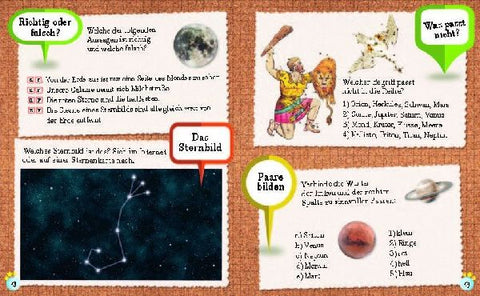 Richtig oder
falsch?
Welche der folgenden
Aussagen ist richtig
und welche falsch?
Von der Erde aus ist nur eine Seite des Mondes zu sehen
Unsere Galaxie nennt sich Milchstraße
Die roten Sterne sind die heißesten.
Die Sterne eines Sternbilds sind alle gleich weit von
der Erde entfernt
Das
Sternbild
Welches Sternbild ist das? Sieh im Internet
oder auf einer Sternenkarte nach.
Was passt
nicht?
Welcher Begriff passt
nicht in die Reihe?
1) Orion, Herkules, Schwan, Mars
2) Sonne, Jupiter, Saturn, Venus
3) Mond, Krater, Flüsse, Meere
4) Kallisto, Triton, Titan, Neptun
Paare
bilden
Verbinde die Wörter
der linken und der rechten
Spalte zu sinnvollen Paaren!
a) Saturn
b) Venus
c) Neptun
d) Merkur
e) Mars
1) klein
2) Ringe
3) rot
4) hell
5) blau